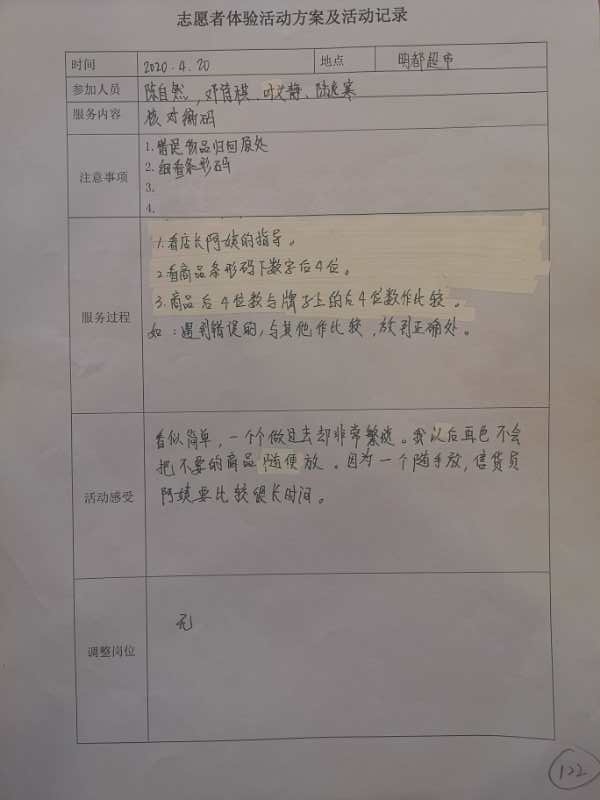 志愿者体验活动方案及活动记录
时间 2020.4.20 地点 明都超市
参加人员 陈自然,邓诗琪、叶文静、陆逸寒
服务内容 核对编码
注意事项
1.错误物品归回原处
2.细看条形码
3.
4.
服务过程
1.看店长阿姨的指导。
2.看商品条形码下数字后4位。
3.商品后4位数与牌子上的后4位数作比较。
如:遇到错误的,与其他作比较,放到正确处。
活动感受
看似简单,一个个做过去却非常繁琐。我以后再也不会
把不要的商品随便放。因为一个随手放,售货员
阿姨要比较很长时间。
调整岗位 无
122